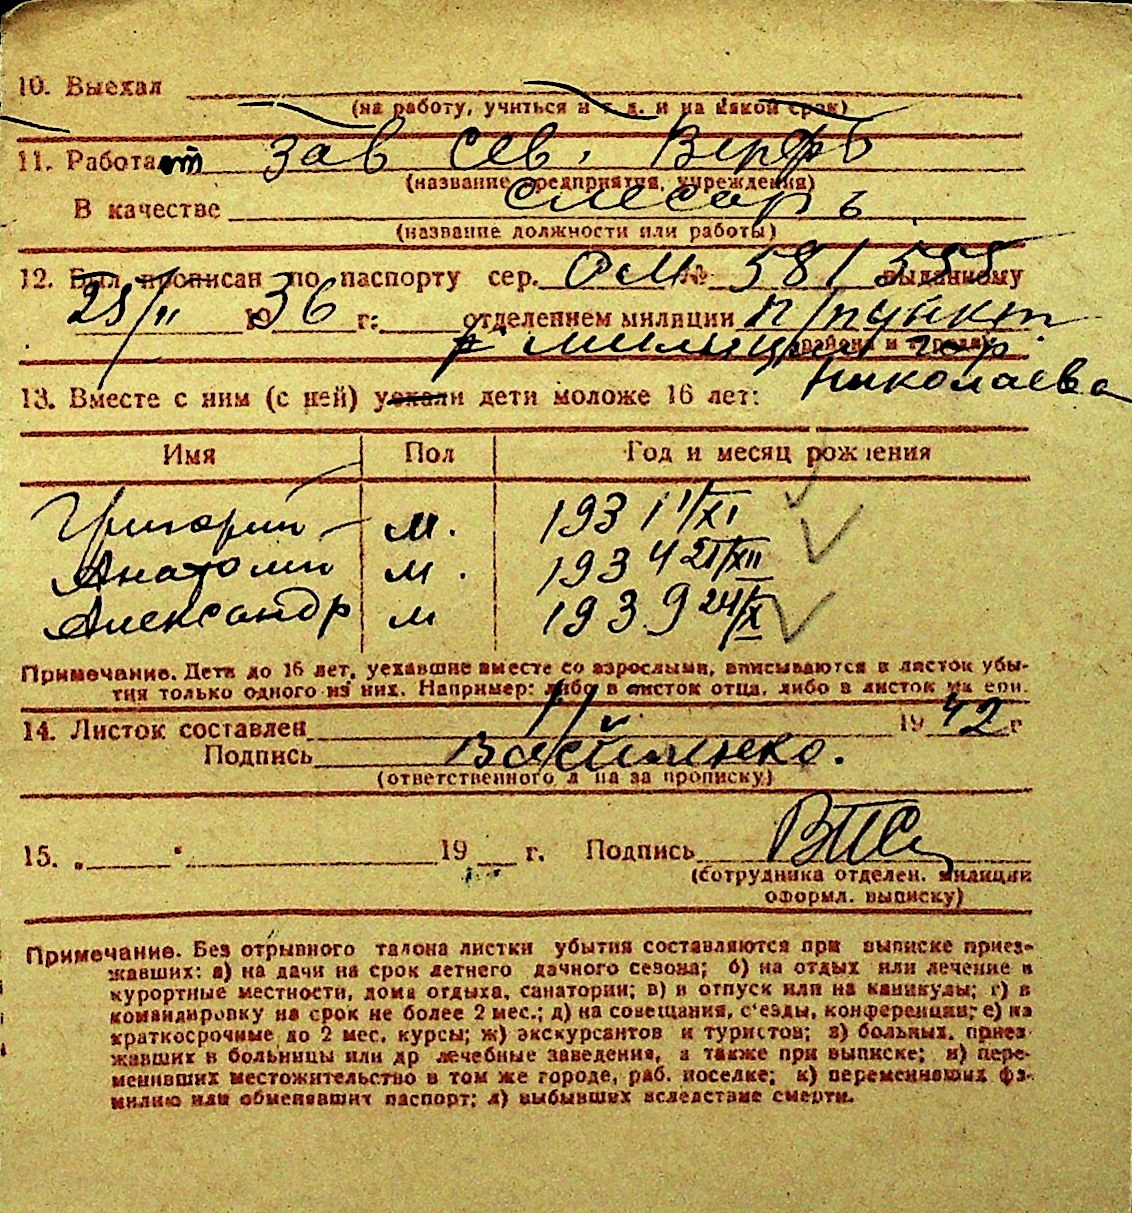 10. Выехал
(на работу, учиться и т. д. и на какой срок)
11. Работает зав Сев. Верфь
(название предприятия, учреждения)
В качестве слесарь
(название должности или работы)
12. Был прописан по паспорту сер. ОМ № 581555 выданному
25/II 1936 г. отделением милиции п/пункт
(района и города)
р милиции гор.
Николаева
13. Вместе с ним (с ней) уехали дети моложе 16 лет:
Имя Пол Год и месяц рождения
Григорий м. 1931 1/XI
Анатолий м. 1934 21/XII
Александр м 1939 24/X
Примечание. Дети до 16 лет, уехавшие вместе со взрослыми, вписываются в листок убы-
тия только одного из них. Например: либо в листок отца, либо в листок матери.
14. Листок составлен 19 42 г
Подпись Василенко.
(ответственного лица за прописку)
15. „ " 19 г. Подпись
(сотрудника отделен. милиции
оформл. выписку)
Примечание. Без отрывного талона листки убытия составляются при выписке приез-
жавших: а) на дачи на срок летнего дачного сезона; б) на отдых или лечение в
курортные местности, дома отдыха, санатории; в) в отпуск или на каникулы; г) в
командировку на срок не более 2 мес.; д) на совещания, с'езды, конференции; е) на
краткосрочные до 2 мес. курсы; ж) экскурсантов и туристов; з) больных, приез
жавших в больницы или др лечебные заведения, а также при выписке; и) пере-
менивших местожительство в том же городе, раб. поселке; к) переменивших фа-
милию или обменявших паспорт; л) выбывших вследствие смерти.